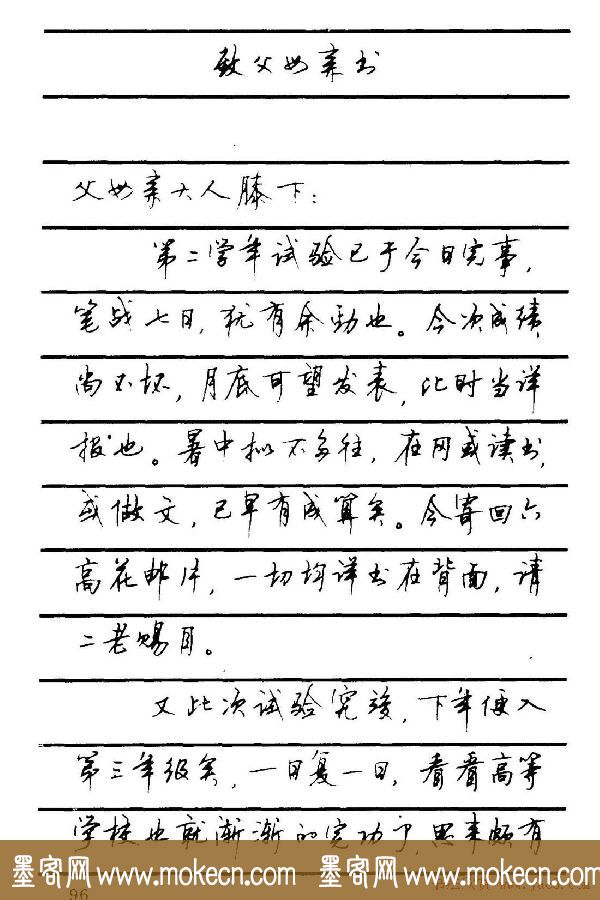 致父母亲书
父母亲大人膝下：
第二学年试验已于今日完事，
笔战七日，犹有余勇也。今次成绩
尚不坏，月底可望发表，此时当详
报也。暑中拟不多往，在冈或读书，
或做文，已早有成算矣。今寄回六
高花邮片，一切均详书在背面，请
二老赐目。
又此次试验完竣，下年便入
第三年级矣，一日复一日，看看高等
学校也就渐渐的完功了，思来颇有
墨客网 www.mokecn.com 墨客网 www.mokecn.com
96